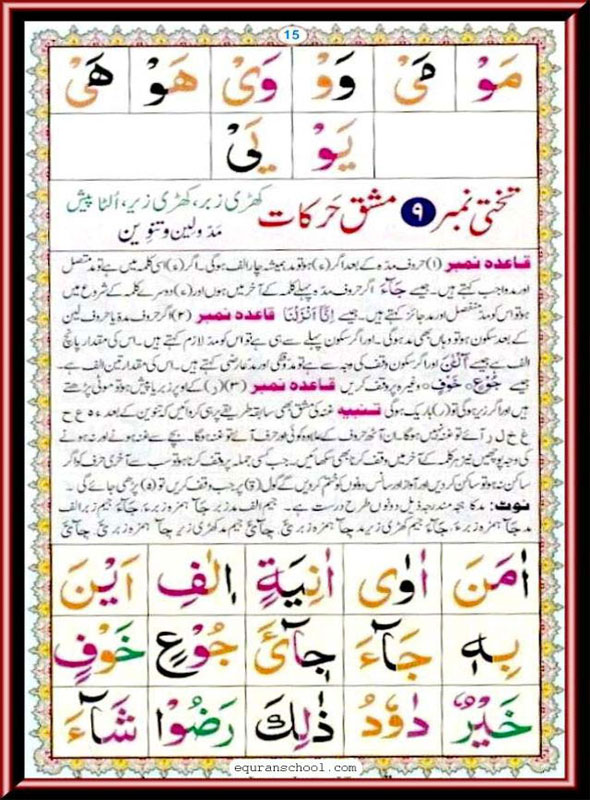 15
مَوْ مَیْ وَوْ وَیْ هَوْ هَیْ
یَوْ یَیْ
تختی نمبر ۹ مشق حَرکات کھڑی زبر، کھڑی زیر، اُلٹا پیش
مَدّ و لین و تنوین
قاعدہ نمبر (۱) حروف مدّہ کے بعد اگر (ء) ہو تو مد ہمیشہ چار الف ہوگی۔ اگر (ء) اسی کلمہ میں ہے تو مد متصل
اور مد واجب کہتے ہیں۔ جیسے جَآءَ اگر حروف مدّہ پہلے کلمہ کے آخر میں ہوں اور (ء) دوسرے کلمے کے شروع میں
ہو تو اس کو مد منفصل اور مد جائز کہتے ہیں۔ جیسے اِنَّآ اَنْزَلْنَا قاعدہ نمبر (۲) اگر حروف مدّہ یا حروف لین
کے بعد سکون ہو تو وہاں بھی مد ہوگی۔ اور اگر سکون پہلے سے ہی ہے تو اس کو مد لازم کہتے ہیں۔ اس کی مقدار پانچ
الف ہے جیسے آلْـٰٔنَ اور اگر سکون وقف کی وجہ سے ہے تو مد وقفی اور مد عارضی کہتے ہیں۔ اس کی مقدار تین الف ہے۔
جیسے جُوْعٍ ○ خَوْفٍ ○ وغیرہ پر وقف کریں قاعدہ نمبر (۳) (ر) کے اوپر زبر یا پیش ہو تو موٹی پڑھتے
ہیں اور اگر زیر ہوگی تو (ر) باریک ہوگی تنبیہ غنہ کی مشق بھی سابقہ طریقے پر ہی کروائیں کہ تنوین کے بعد ء ہ ع ح
غ خ ل ر آئے تو غنہ نہیں ہوگا۔ ان آٹھ حروف کے علاوہ کوئی اور حرف آئے تو غنہ ہوگا۔ بچے سے غنہ ہونے اور نہ ہونے
کی وجہ پوچھیں نیز ہر کلمہ کے آخر میں وقف کرنا بھی سکھائیں۔ جب کسی جملہ پر وقف کرنا ہو تو سب سے آخری حرف کو اگر
ساکن نہ ہو تو ساکن کر دیں اور آواز اور سانس دونوں کو ختم کر دیں گے گول (ۃ) پر جب وقف کریں تو (ہ) پڑھی جائے گی۔
نوٹ: مد کا ہجہ مندرجہ ذیل دونوں طرح درست ہے۔ جیم الف مد زبر جَآ ہمزہ زبر ءَ جَآءَ جیم زبر الف
اٰمَنَ اٰوٰی اٰنِیَةٍ اِلٰفِ اَیْنَ
بِهٖ جَآءَ جِآیْٓءَ جُوْعٍ خَوْفٍ
خَیْرٌ دَاوٗدُ ذٰلِكَ رَضُوْا شَآءَ
equranschool.com